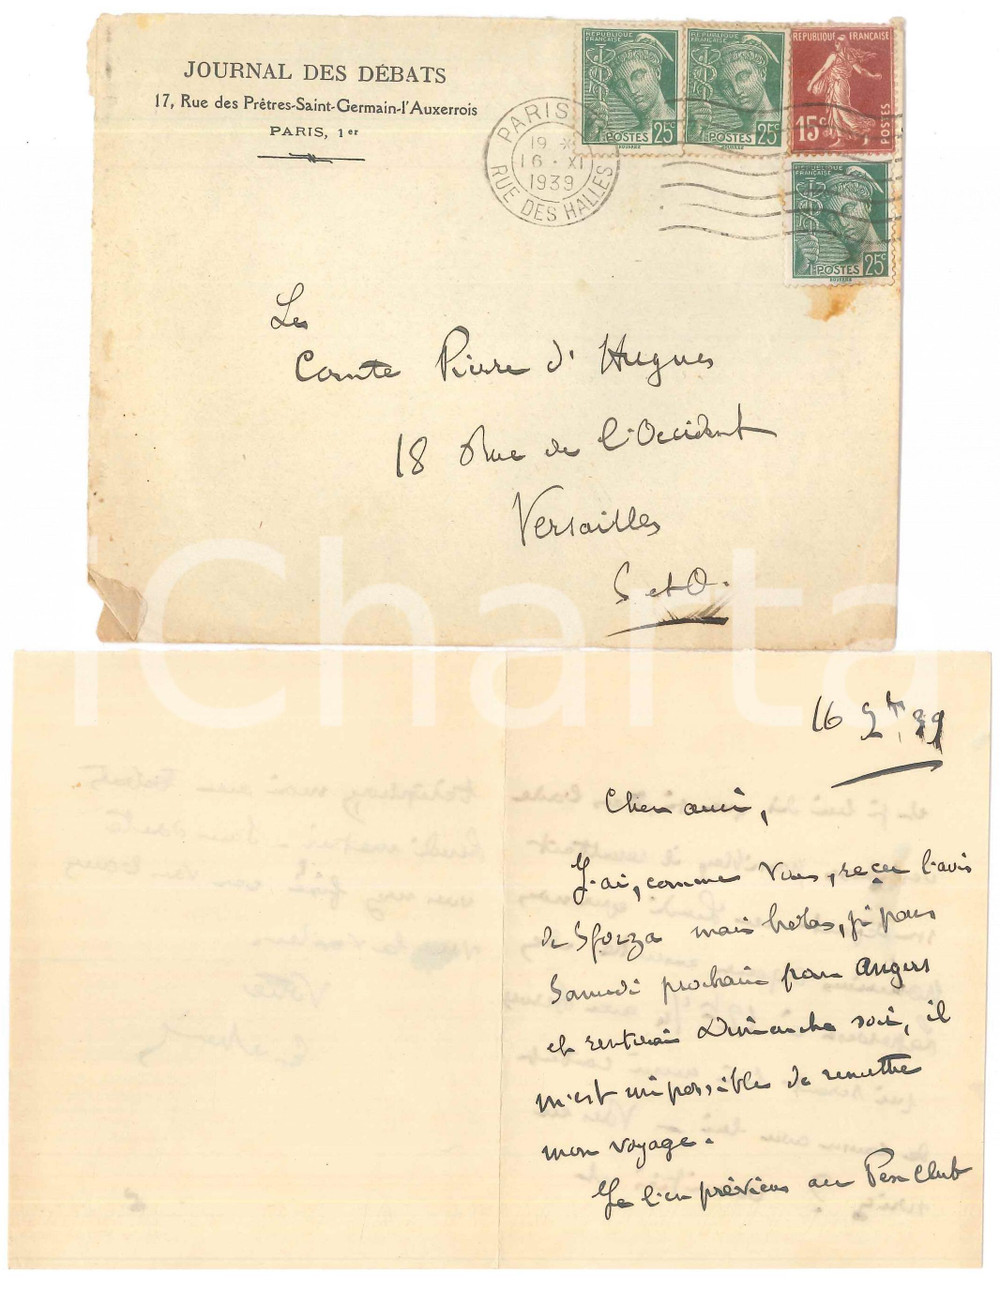 JOURNAL DES DÉBATS
17, Rue des Prêtres-Saint-Germain-l'Auxerrois
PARIS, 1er
RÉPUBLIQUE FRANÇAISE
POSTES 25c
RÉPUBLIQUE FRANÇAISE
POSTES 25c
RÉPUBLIQUE FRANÇAISE
15c POSTES
RÉPUBLIQUE FRANÇAISE
POSTES 25c
PARIS
19
16 · XI
1939
RUE DES HALLES
Les
Comte Pierre d'Hugues
18 Rue de l'Occident
Versailles
S et O.
iCharta
16 9bre 39
Cher ami,
J'ai, comme vous, reçu l'avis
de Sforza mais hélas, je pars
Samedi prochain pour Angers
et rentrerai Dimanche soir, il
m'est impossible de remettre
mon voyage.
Je l'en préviens au Pen Club